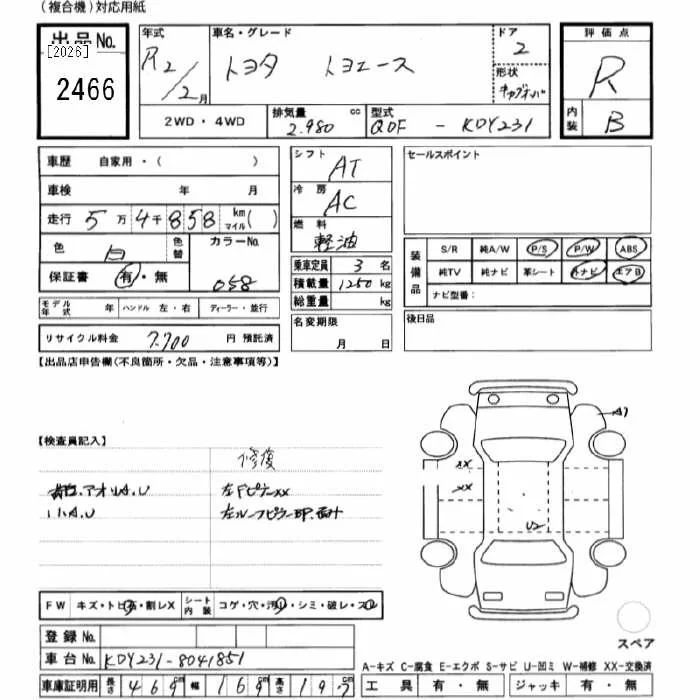 (複合機)対応用紙
出品No.
[2026]
2466
年式
R2/2月
車名・グレード
トヨタ トヨエース
ドア
2
形状
評価点
R
内装
B
2WD・4WD
排気量
2.980 cc
型式
QDF - KDY231
車歴 自家用・( )
車検 年 月
走行 5万4千858 km マイル( )
色 白 色替
カラーNo.
058
保証書 有・無
モデル年式 年 ハンドル 左・右 ディーラー・並行
リサイクル料金 7.700 円 預託済
シフト
AT
冷房
AC
燃料
軽油
乗車定員 3 名
積載量 1250 kg
総重量 kg
名変期限
月 日
セールスポイント
装備品
S/R 純A/W P/S P/W ABS
純TV 純ナビ 革シート ナビ エアB
ナビ型番:
後日品
【出品店申告欄(不良箇所・欠品・注意事項等)】
【検査員記入】
修復
アオリA.U
左FピラーXX
リA.U
左ルーフピラー
A1
XX
XX
U2
FW キズ・トビ石・割レX
シート内装 コゲ・穴・汚レ・シミ・破レ・スレ
登録No.
車台No. KDY231-8041851
車庫証明用 長さ 469 幅 169 高さ 197
スペア
A-キズ C-腐食 E-エクボ S-サビ U-凹ミ W-補修 XX-交換済
工具 有・無 ジャッキ 有・無